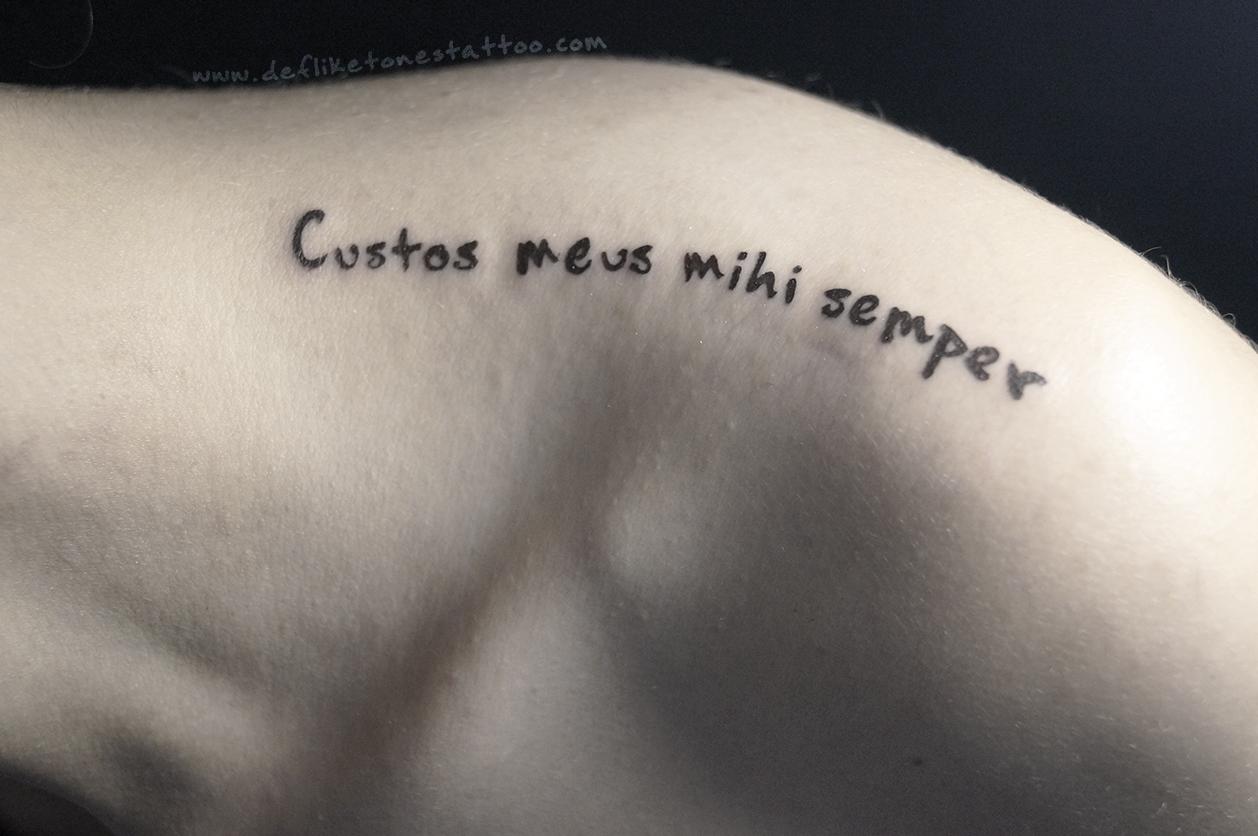 www.defliketonestattoo.com
Custos meus mihi semper